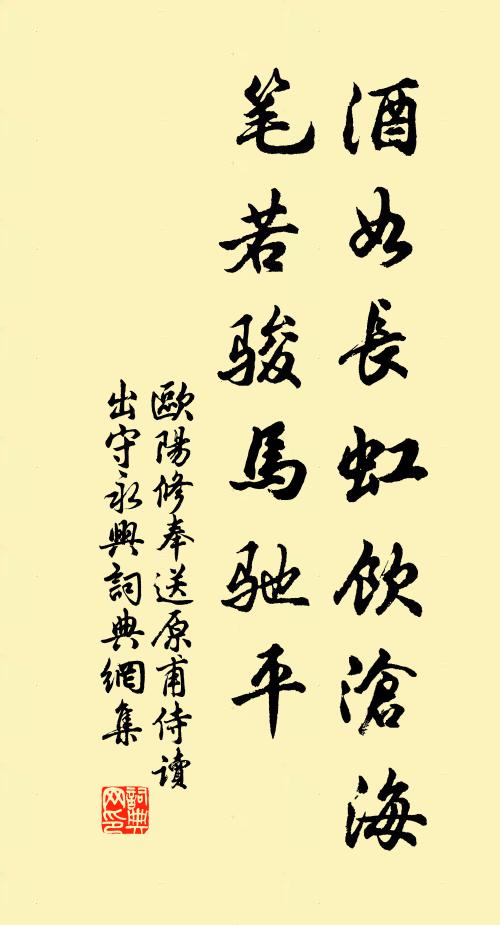 酒如長虹飲滄海
笔若骏馬驰平
歐陽修奉送原甫侍讀
出守永興詞典網集
詞典
网印